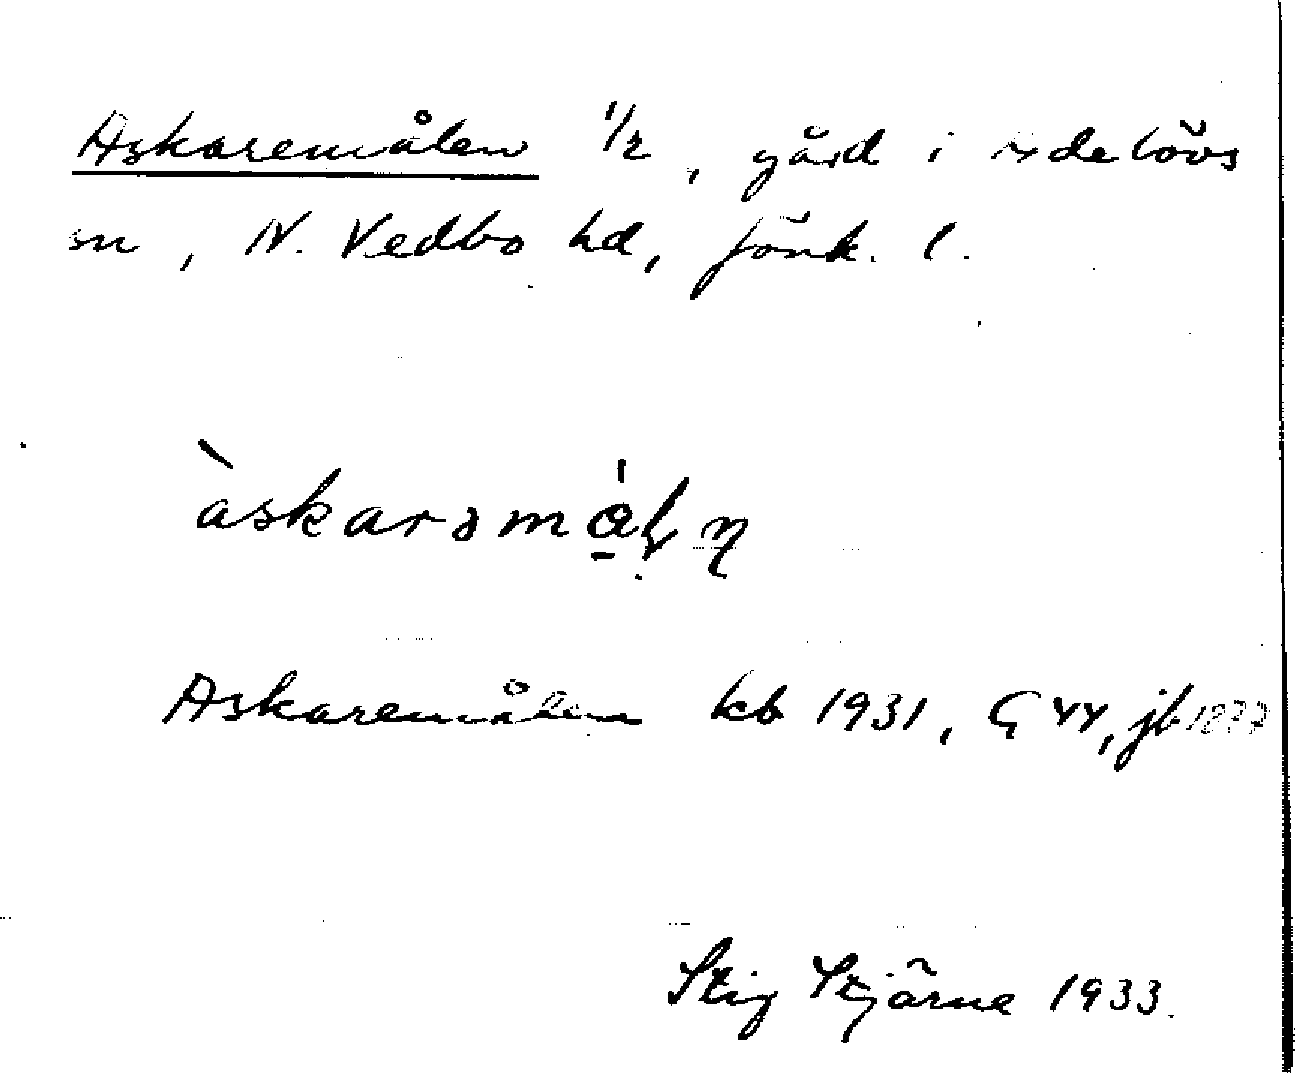 Askaremålen 1/2, gård i Adelövs
sn, N. Vedbo hd, Jönk. l.
àskarəmå̱lņ
Askaremålen kb 1931, G 44, jb 1877
Stig Stjärne 1933.